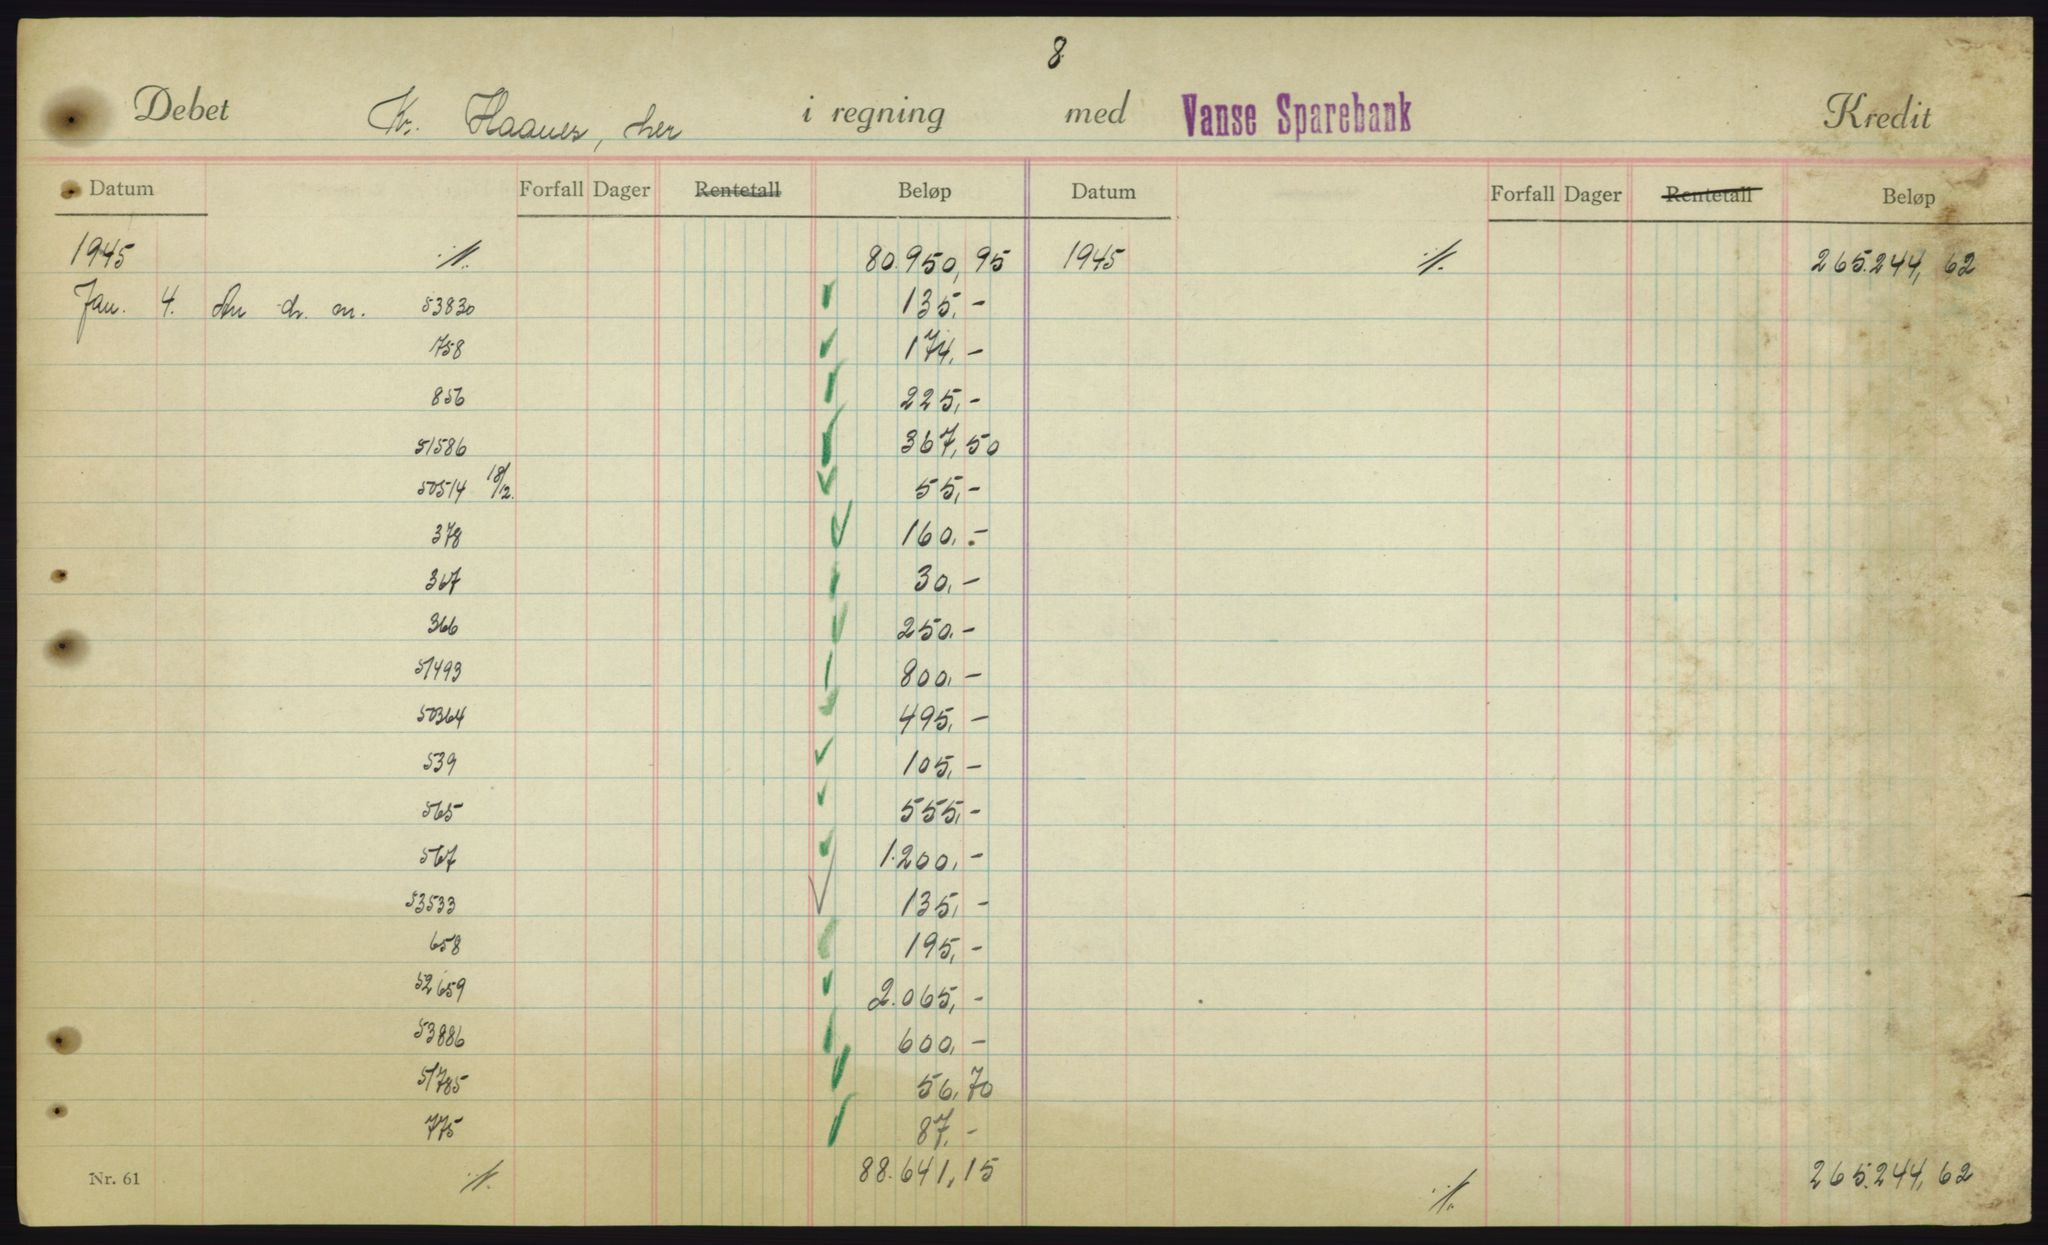 8
Debet Kr. Haanes, her i regning med Vanse Sparebank Kredit
Datum Forfall Dager Rentetall Beløp Datum Forfall Dager Rentetall Beløp
1945 ·/·. 80.950,95 1945 ·/·. 265.244,62
Jan. 4. An dr. m. 53830 135,-
758 174,-
856 225,-
51586 367,50
50514 18/12. 55,-
378 160,-
367 30,-
366 250,-
51493 800,-
50364 495,-
539 105,-
565 555,-
567 1.200,-
53533 135,-
658 195,-
52659 2.065,-
53886 600,-
51785 56,70
775 87,-
Nr. 61 ·/·. 88.641,15 ·/·. 265.244,62